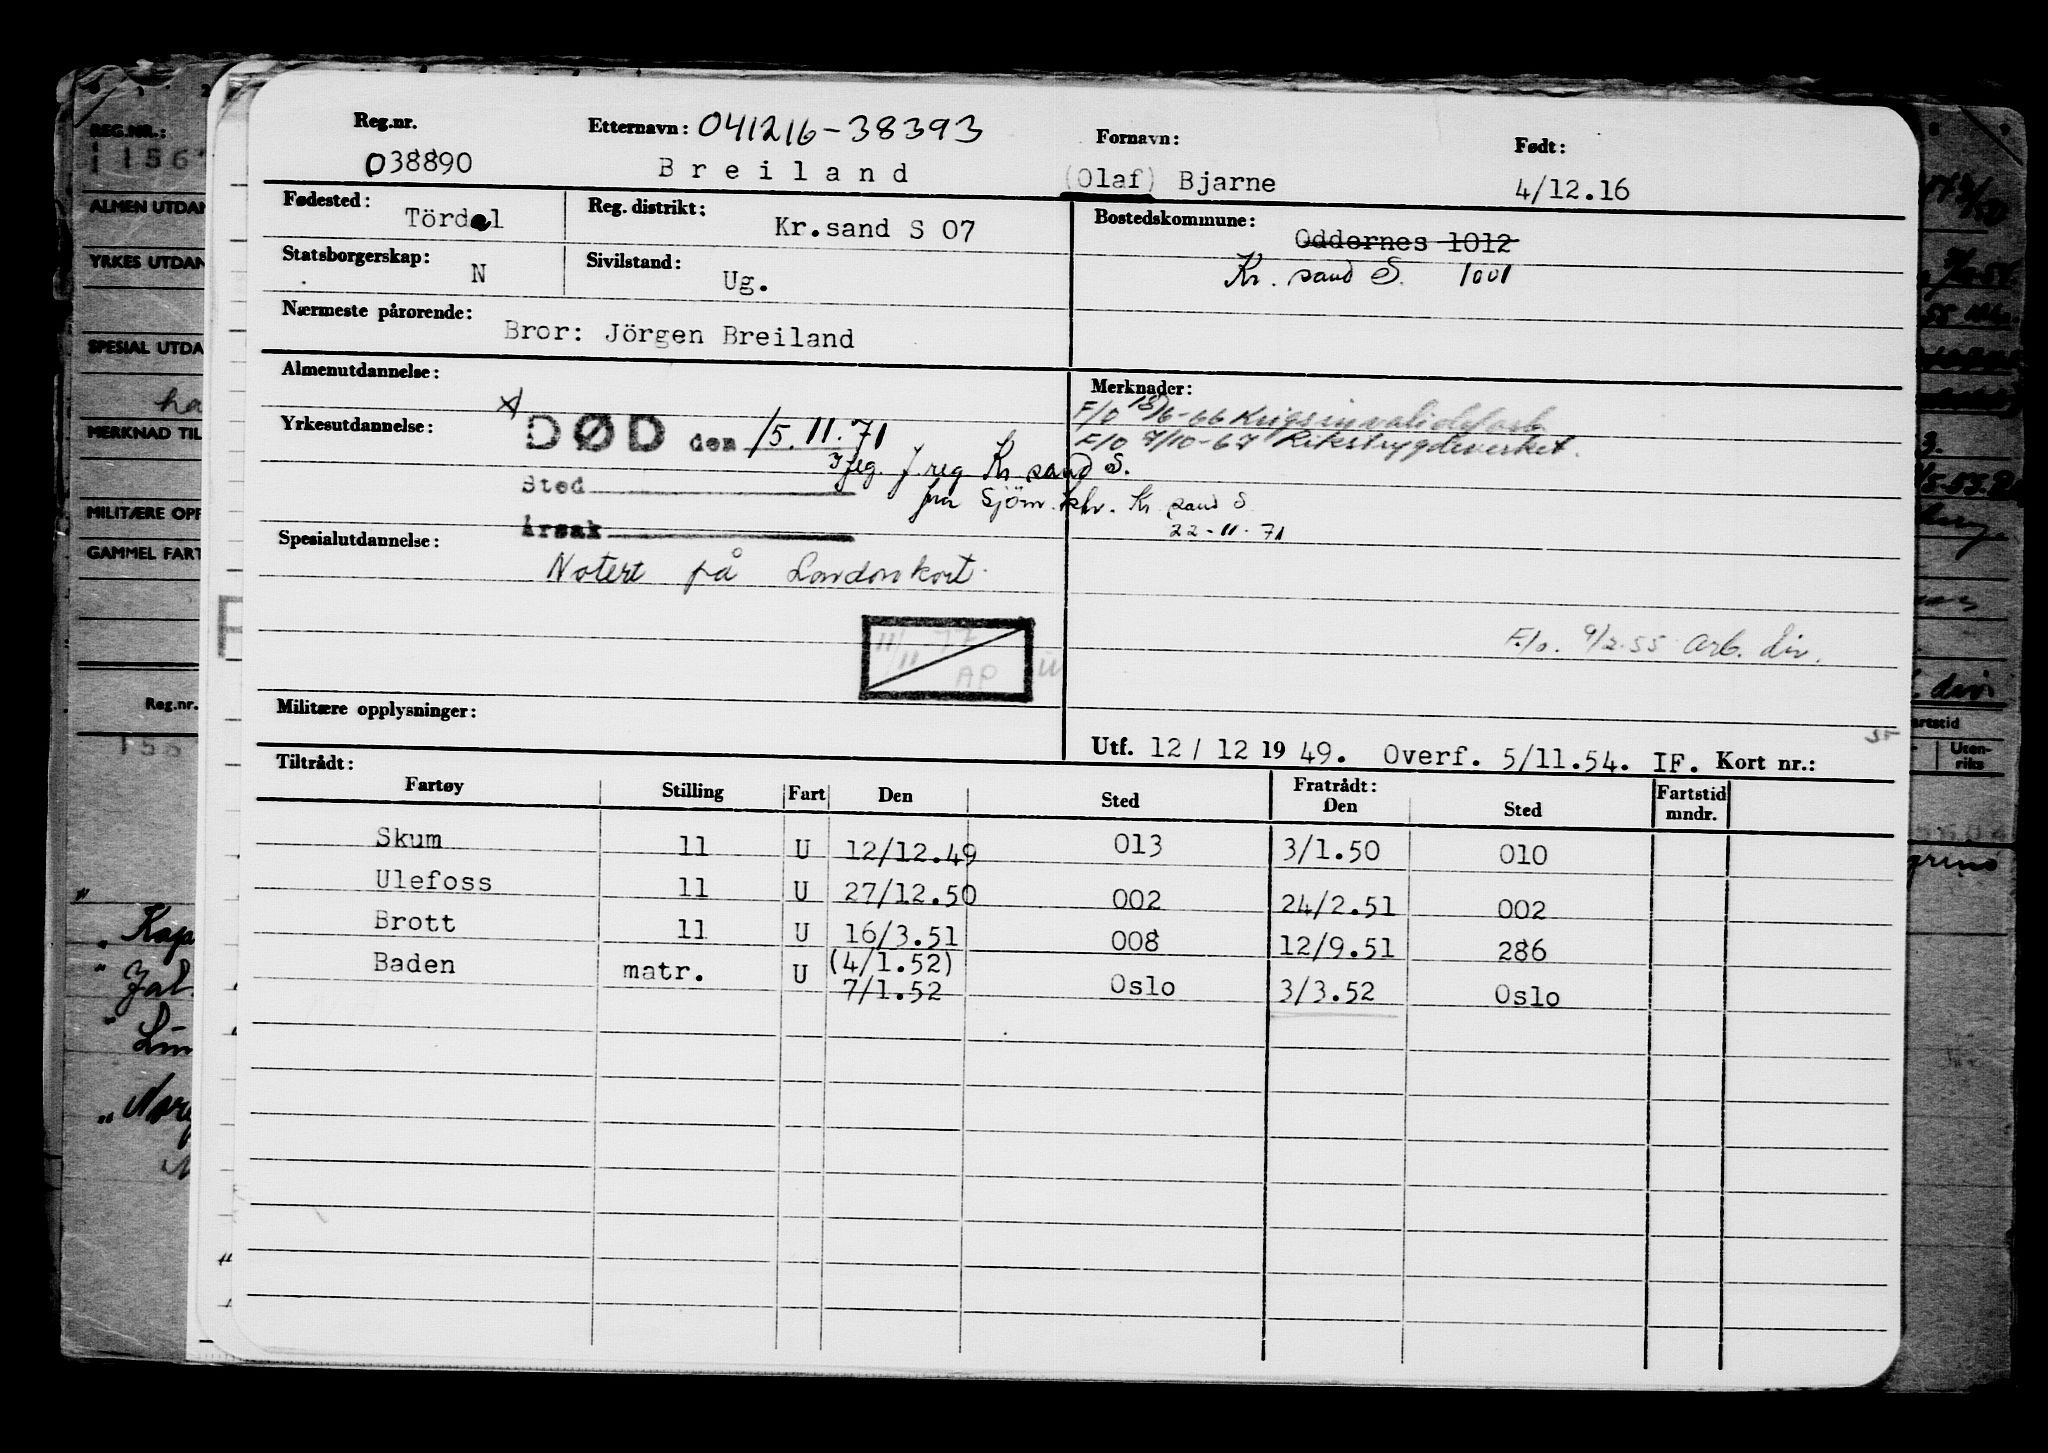 Reg.nr. Etternavn: 041216-38393 Fornavn: Født:
038890 Breiland (Olaf) Bjarne 4/12.16
Fødested: Tördal Reg. distrikt: Kr.sand S 07 Bostedskommune: Oddernes 1012
Statsborgerskap: N Sivilstand: Ug. Kr. sand S. 1001
Nærmeste pårørende: Bror: Jörgen Breiland
Almenutdannelse: Merknader:
F/o 18/6-66 Krigsinvalidefarb
Yrkesutdannelse: DØD den 15.11.71 F/o 9/10-67 Rikstrygdeverket.
J.reg Kr sand S.
Sted fra Sjöm.ktr. Kr sand S
Årsak 22-11-71
Spesialutdannelse:
Notert på Londonkort
F/o. 9/2-55 arb. div.
11/11-77
AP
Militære opplysninger:
Utf. 12/12 1949. Overf. 5/11.54. IF. Kort nr.:
Tiltrådt: Fratrådt: Fartstid
Fartøy Stilling Fart Den Sted Den Sted mndr.
Skum 11 U 12/12.49 013 3/1.50 010
Ulefoss 11 U 27/12.50 002 24/2.51 002
Brott 11 U 16/3.51 008 12/9.51 286
Baden matr. U (4/1.52) 7/1.52 Oslo 3/3.52 Oslo
REG.NR.:
ALMEN UTDAN
YRKES UTDAN
SPESIAL UTDA
MERKNAD TIL
MILITÆRE OPP
GAMMEL FART
Reg.nr.
Uten-
riks